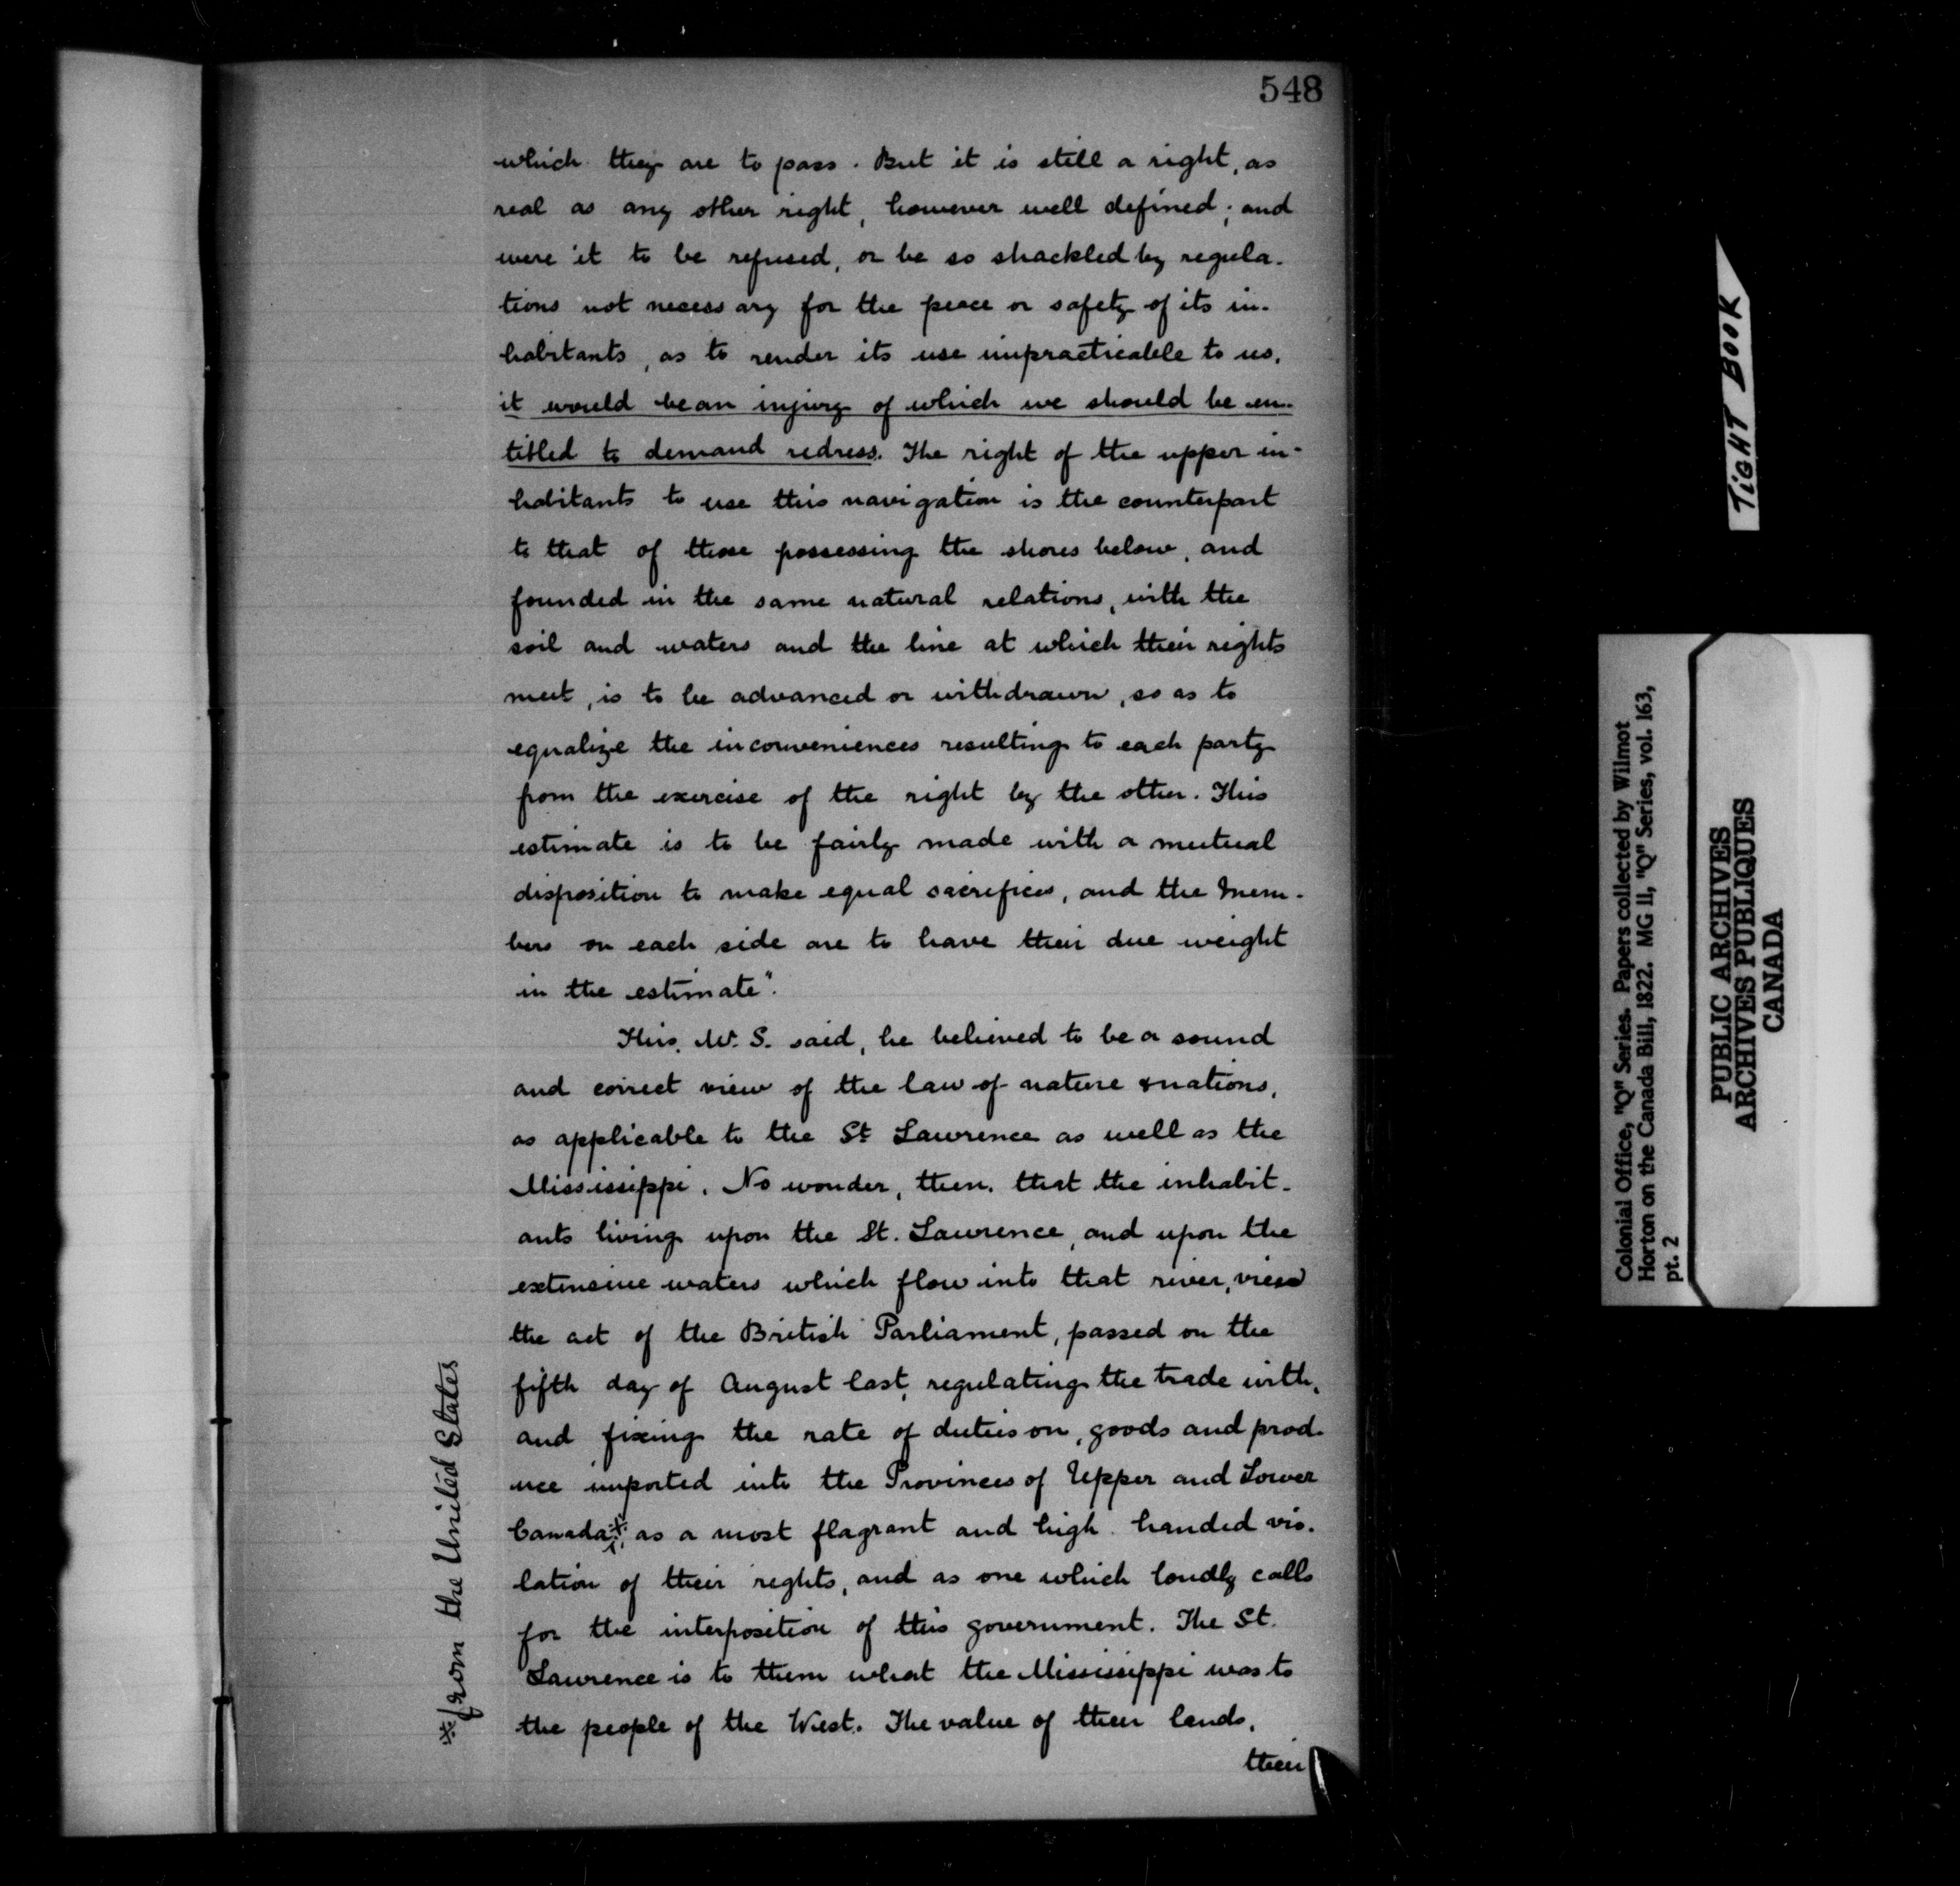 548
which they are to pass. But it is still a right, as
real as any other right, however well defined; and
were it to be refused, or be so shackled by regula-
tions not necessary for the peace or safety of its in-
habitants, as to render its use impracticable to us,
it would be an injury of which we should be en-
titled to demand redress. The right of the upper in-
habitants to use this navigation is the counterpart
to that of those possessing the shores below, and
founded in the same natural relations, with the
soil and waters and the line at which their rights
meet, is to be advanced or withdrawn, so as to
equalize the inconveniences resulting to each party
from the exercise of the right by the other. This
estimate is to be fairly made with a mutual
disposition to make equal sacrifices, and the mem-
bers on each side are to have their due weight
in the estimate".
This, Mr. S. said, he believed to be a sound
and correct view of the law of nature & nations,
as applicable to the St Lawrence as well as the
Mississippi. No wonder, then, that the inhabit-
ants living upon the St. Lawrence, and upon the
extensive waters which flow into that river, view
the act of the British Parliament, passed on the
fifth day of August last, regulating the trade with,
and fixing the rate of duties on, goods and prod-
uce imported into the Provinces of Upper and Lower
Canada※, as a most flagrant and high-handed vio-
lation of their rights, and as one which loudly calls
for the interposition of this government. The St.
Lawrence is to them what the Mississippi was to
the people of the West. The value of their lands,
their
※from the United States
TIGHT BOOK
Colonial Office, "Q" Series. Papers collected by Wilmot
Horton on the Canada Bill, 1822. MG 11, "Q" Series, vol. 163,
pt. 2
PUBLIC ARCHIVES
ARCHIVES PUBLIQUES
CANADA